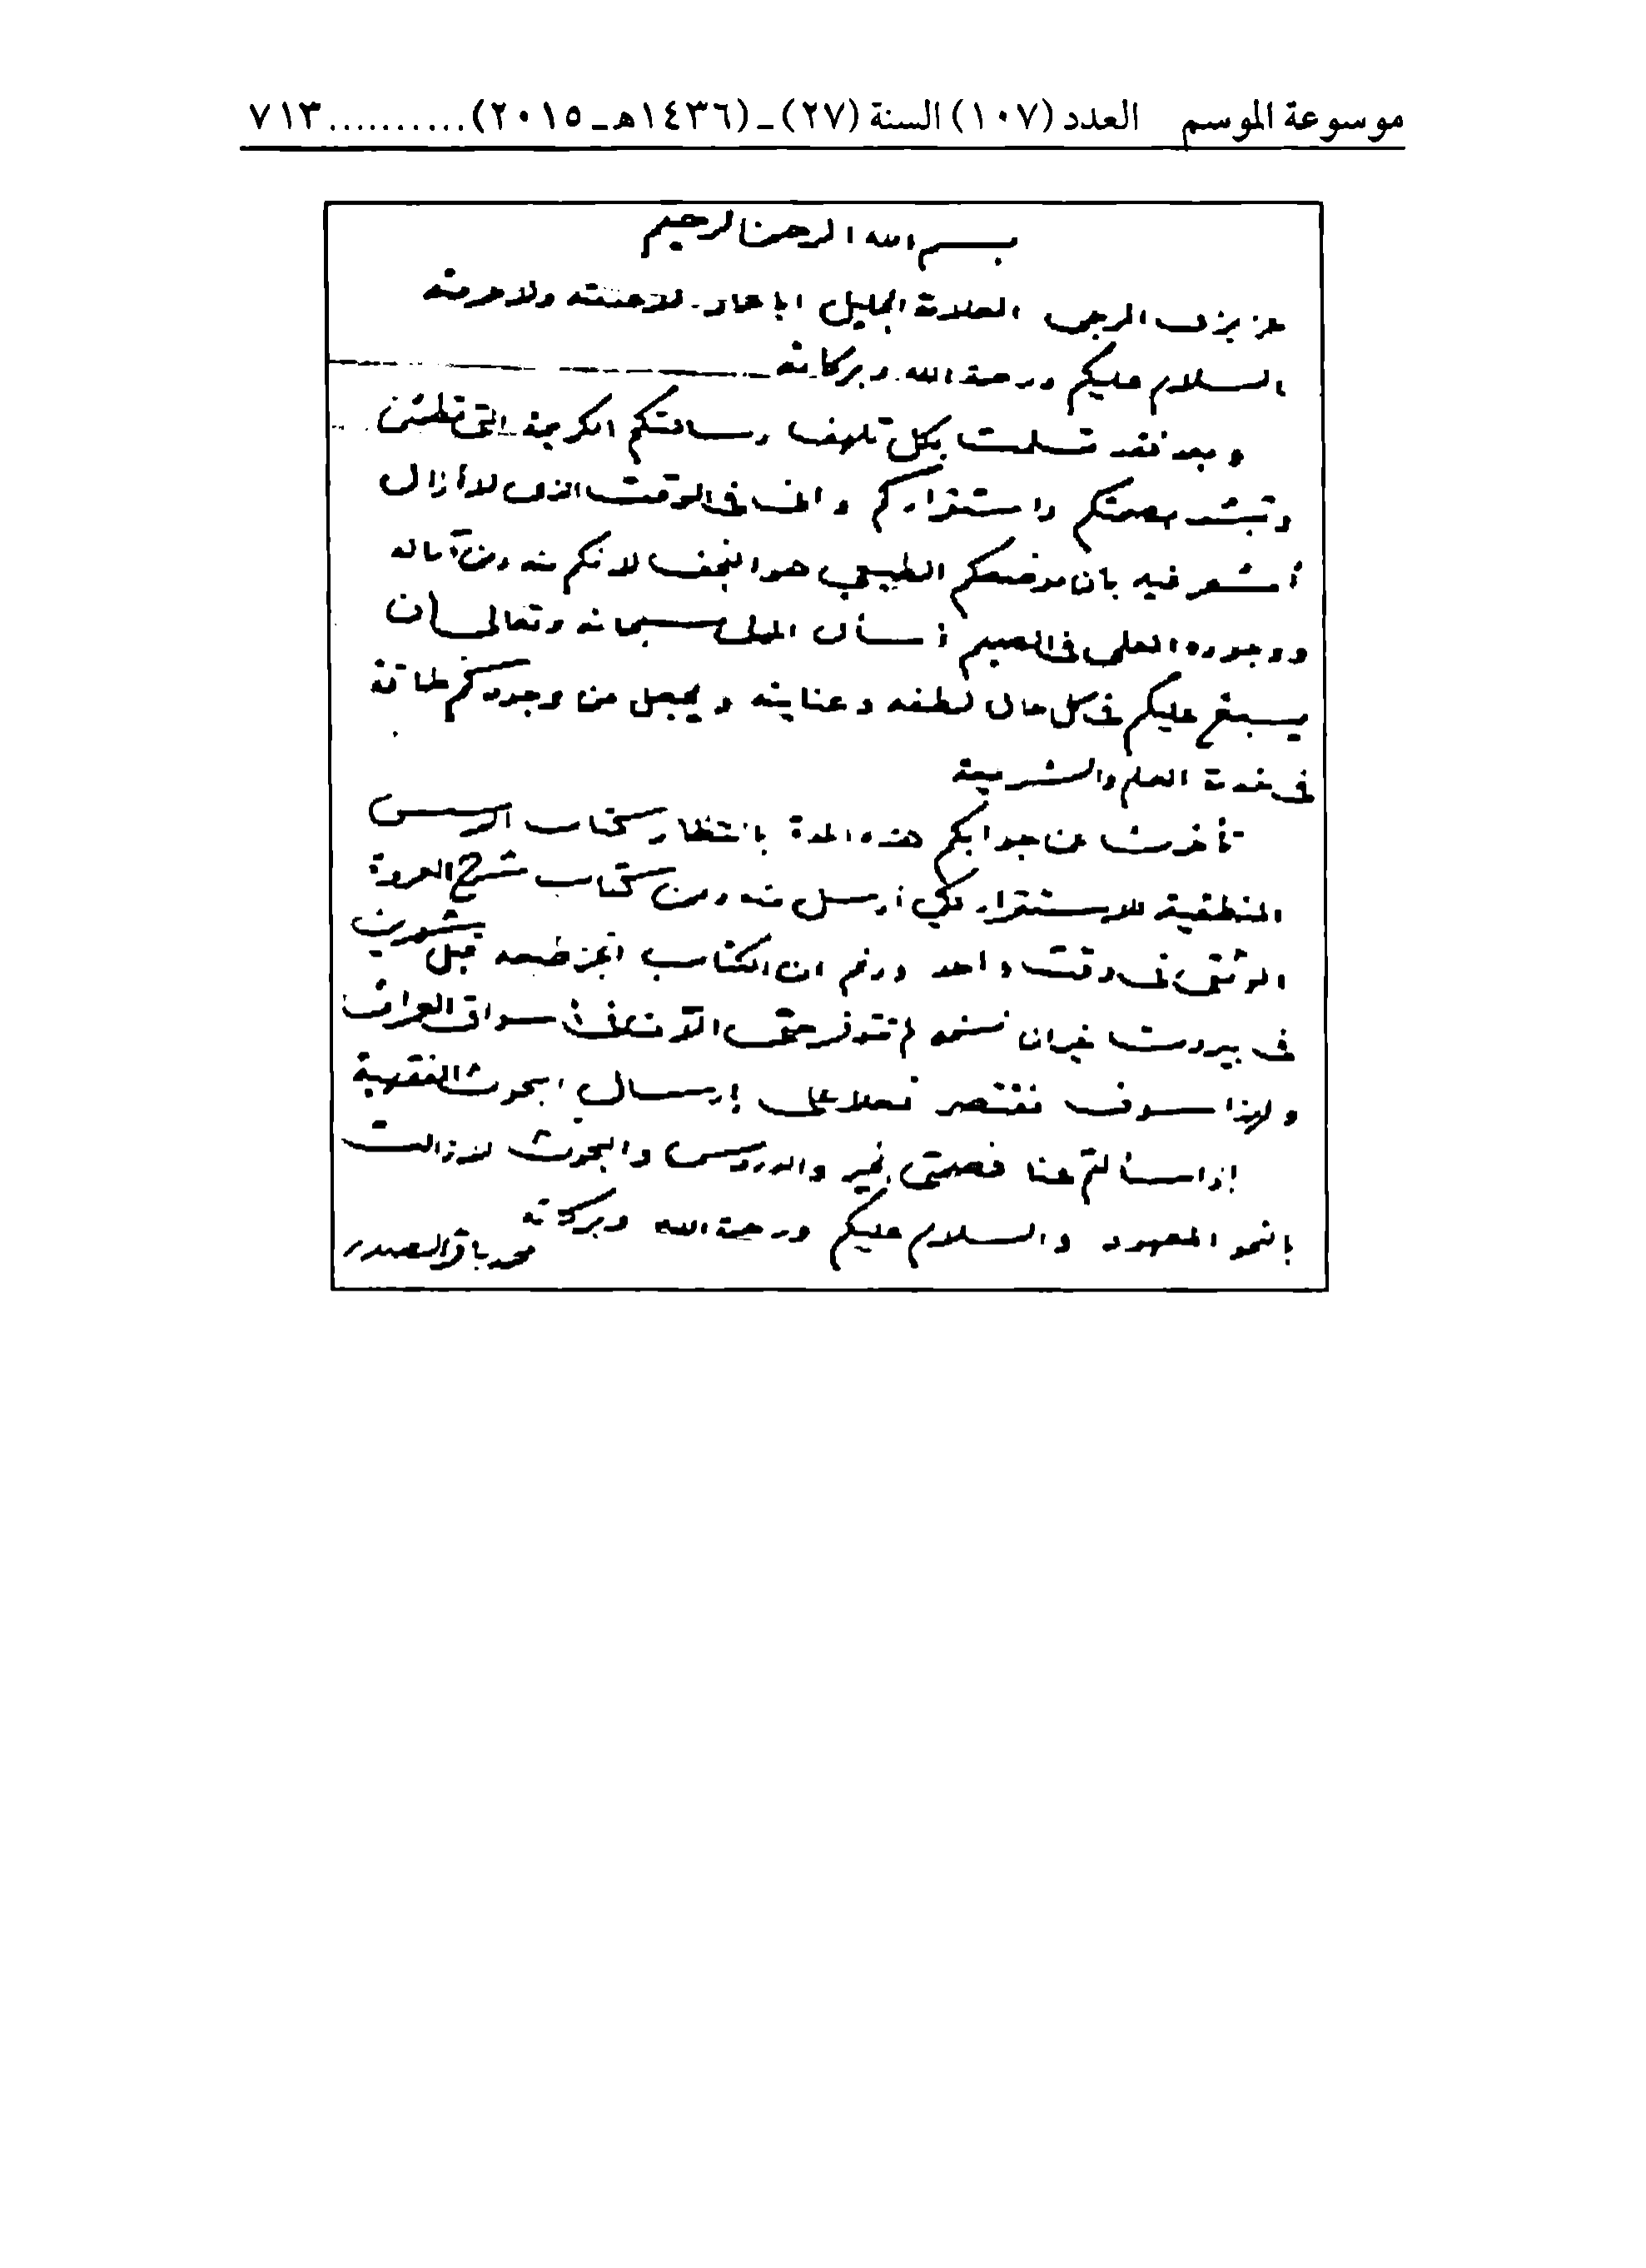 موسوعة الموسم العدد (١٠٧) السنة (٢٧) ـ (١٤٣٦هـ ـ ٢٠١٥) .......... ٧١٣
بسم الله الرحمن الرحيم
عزيزي المرجى العلامة الجليل ابا عماد لاعدمته ولاحرمته
السلام عليكم ورحمة الله وبركاته
وبعد فقد تسلمت بكل تلهف رسالتكم الكريمة التي تطمئن
وتبشر بصحتكم واستقراركم واني في الوقت الذي لا أزال
أشعر فيه بان موضعكم الطبيعي هو النجف لانكم منه ومن آماله
ووجوده العلمي في الصميم أسأل المولى سبحانه وتعالى أن
يسبغ عليكم في كل حال لطفه وعنايته ويجعل من وجودكم طاقة
في خدمة العلم والشريعة
تأخرت عن جوابكم هذه المدة بانتظار كتاب الاسس
المنطقية للاستقراء لكي أرسل منه ومن كتاب شرح العروة
الوثقى في وقت واحد ورغم ان الكتاب انجز طبعه قبل شهرين
في بيروت غير ان نسخه لم تتوفر حتى الآن في اسواق العراق
ولهذا سوف نقتصر فعلا على إرسال بحوث الفقهية
إذا سألتم عنا فصحتي بخير والدروس والبحوث لا زالت
بالنحو المعهود والسلام عليكم ورحمة الله وبركاته
محمد باقر الصدر